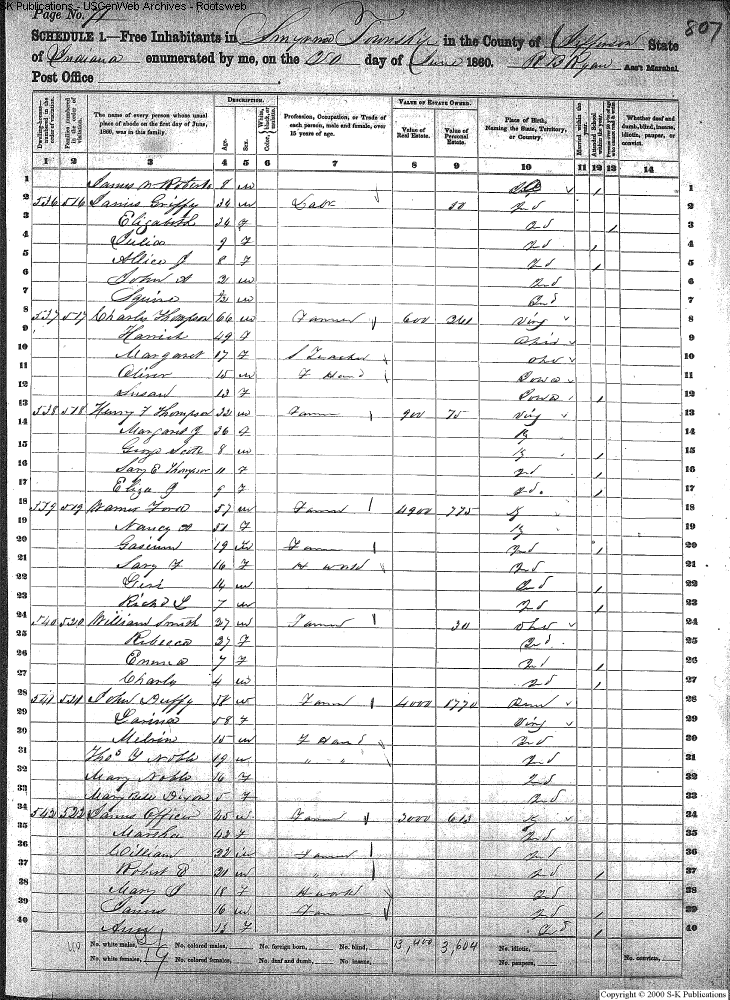 S-K Publications - USGenWeb Archives - Rootsweb
Page No. 11
807
SCHEDULE 1.—Free Inhabitants in Smyrna Township in the County of Jefferson State
of Indiana enumerated by me, on the 20 day of June 1860. R B Ryan Ass't Marshal.
Post Office
DESCRIPTION. VALUE OF ESTATE OWNED.
The name of every person whose usual place of abode on the first day of June, 1860, was in this family.
Age. Sex. Color, White, black, or mulatto.
Profession, Occupation, or Trade of each person, male and female, over 15 years of age.
Value of Real Estate. Value of Personal Estate.
Place of Birth, Naming the State, Territory, or Country.
Married within the year. Attended School within the year.
Whether deaf and dumb, blind, insane, idiotic, pauper, or convict.
1 2 3 4 5 6 7 8 9 10 11 12 13 14
1 James W Roberts 8 m 1
2 536 516 James Griffy 34 m Lab 50 Ind 2
3 Elizabeth 34 f Ind 3
4 Julia 9 f Ind 4
5 Allice J 8 f Ind 5
6 John A 2 m Ind 6
7 Squire m Ind 7
8 537 517 Charles Thompson 66 m Farmer 600 Virg 8
9 49 f Ohio 9
10 Margaret 17 f S Teacher Ohio 10
11 Oliver 15 m F Hand Iowa 11
12 Susan 13 f Iowa 12
13 538 518 Henry T Thompson 32 m Farmer 900 75 Virg 13
14 Margaret J 36 f Ky 14
15 George Scott 8 m Ky 15
16 Sary E Thompson 11 f Ind 16
17 Eliza J 9 f Ind. 17
18 539 519 Ford 57 m Farmer 4900 775 Ky 18
19 Nancy 51 f Ky 19
20 19 m Farmer Ind 20
21 Sary F 16 f H work Ind 21
22 Levi 14 m Ind 22
23 Richd L 7 m Ind 23
24 540 520 William Smith 37 m Farmer 30 Ohio 24
25 Rebecca 27 f Ind 25
26 Emma 7 f Ind 26
27 Charls 4 m Ind 27
28 541 521 John Duffy 58 m Farmer 4000 1770 28
29 58 f Virg 29
30 Melvin 15 m F Hand Ind 30
31 Thos G Noble 19 m " " Ind 31
32 Mary Noble 16 f Ind 32
33 Mary Bell Dixon 5 f Ind 33
34 542 522 James Officer 45 m Farmer 3000 613 Ky 34
35 Marsha 42 f Ind 35
36 William 22 m Farmer Ind 36
37 Robert E 21 m " Ind 37
38 Mary J 18 f H work Ind 38
39 James 16 m Farmer Ind 39
40 Amy 13 f Ind 40
No. white males, No. colored males, No. foreign born, No. blind, 13,400 3,604 No. idiotic,
No. white females, 19 No. colored females, No. deaf and dumb, No. insane, No. paupers, No. convicts,
Copyright © 2000 S-K Publications